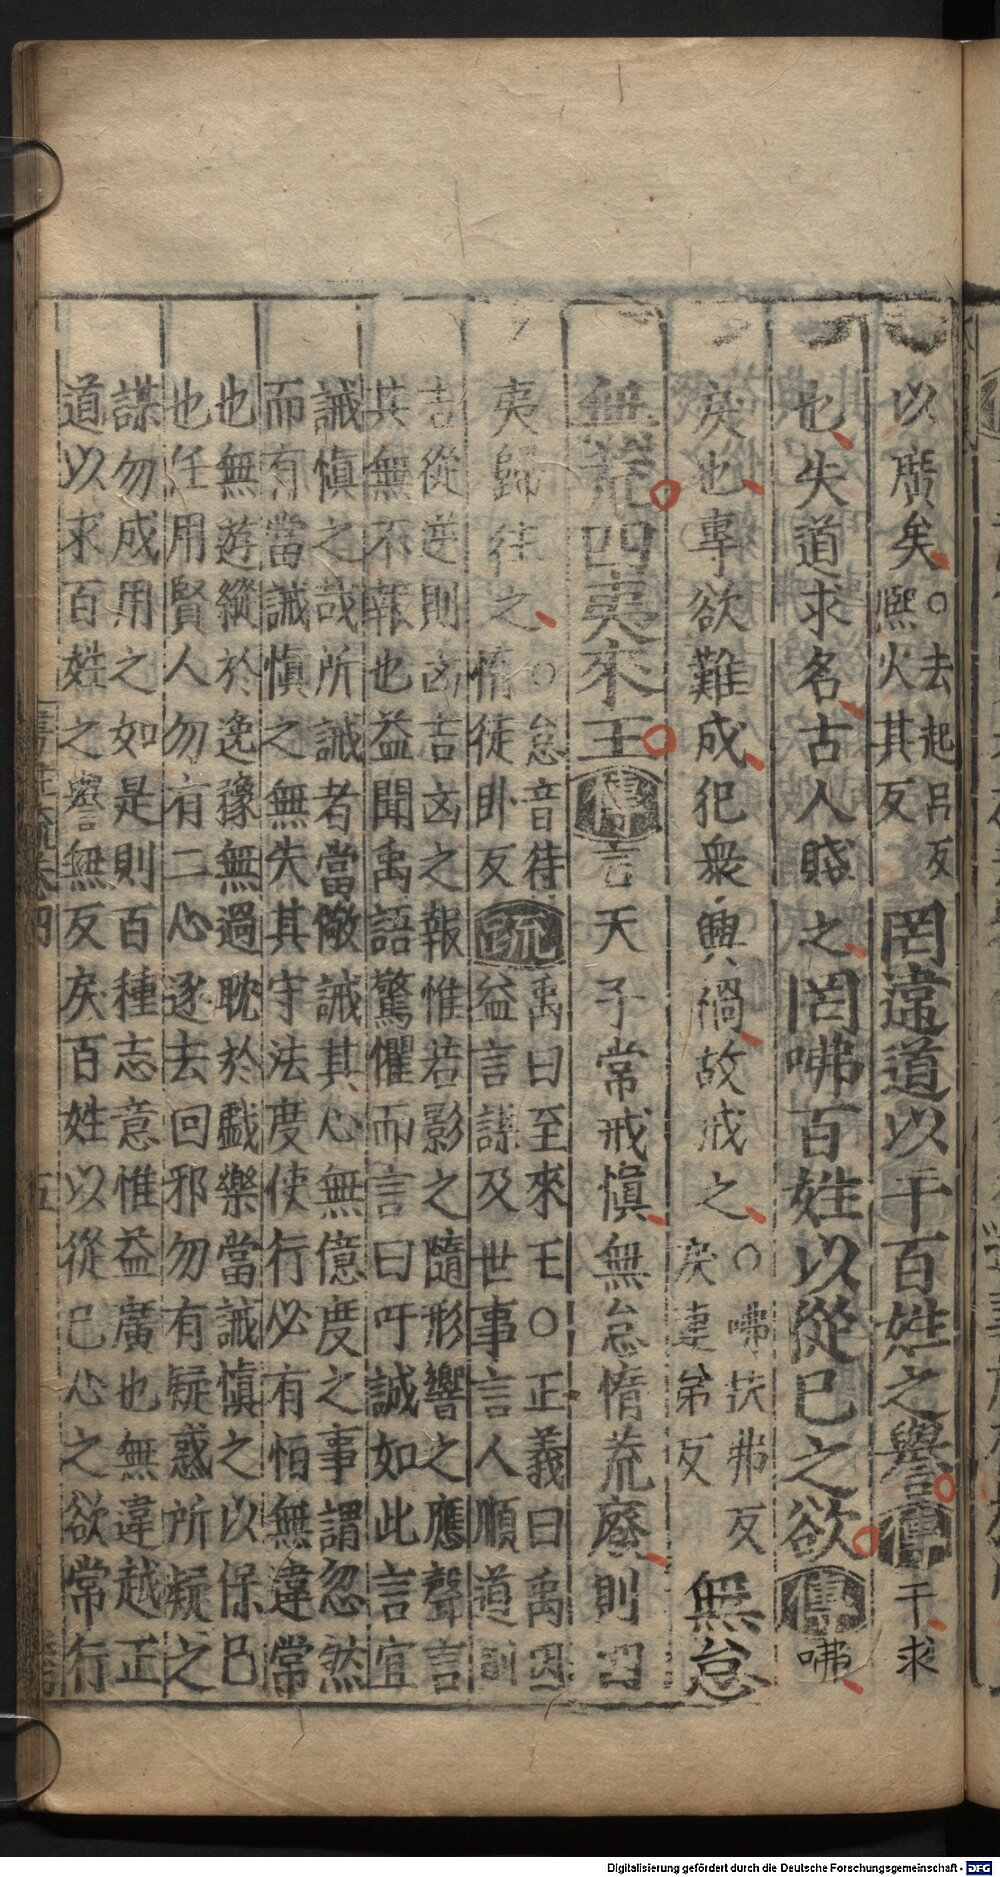 以廣矣○去起呂反熈火其反罔違道以干百姓之譽傳干求
也失道求名古人賤之罔咈百姓以從己之欲傳咈
戾也專欲難成犯衆興禍故戒之○咈扶弗反戾連弟反無怠
無荒四夷來王傳言天子常戒愼無怠惰荒廢則四
夷歸往之○怠音待惰徒卧反疏禹曰至來王○正義曰禹因益言謀及世事言人順道則
吉從逆則凶吉凶之報惟若影之隨形響之應聲言
其無不報也益聞禹語驚懼而言曰吁誠如此言宜
誡愼之哉所誡者當儆誡其心無億度之事謂忽然
而有當誡愼之無失其守法度使行必有恒無違常
也無遊縱於逸豫無過耽於戲樂當誡愼之以保己
也任用賢人勿有二心逐去回邪勿有疑惑所疑之
謀勿成用之如是則百種志意惟益廣也無違越正
道以求百姓之譽無反戾百姓以從己心之欲常行
五
Digitalisierung gefördert durch die Deutsche Forschungsgemeinschaft - DFG